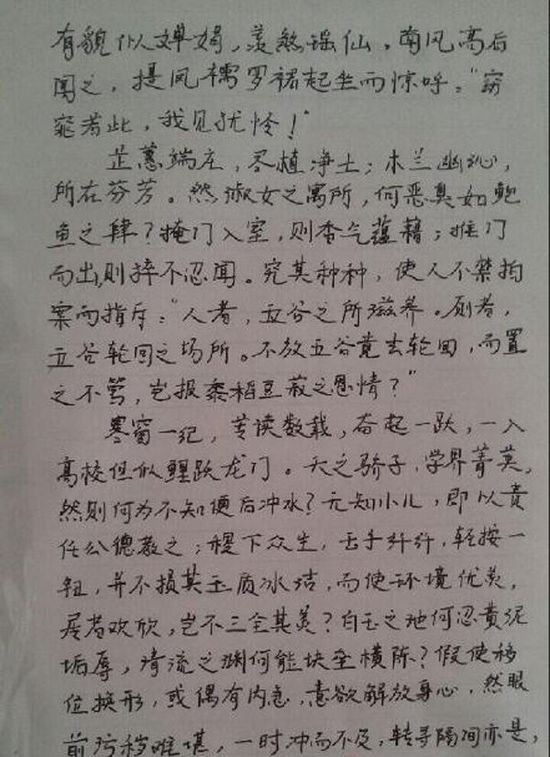 有貌似婵娟，羡煞瑶仙。南风高后
闻之，提凤襦罗裙起坐而惊呼："窈
窕若此，我见犹怜！"
芷蕙端庄，尽植净土；木兰幽沁，
所在芬芳。然淑女之寓所，何恶臭如鲍
鱼之肆？掩门入室，则香气蕴藉；推门
而出，则捽不忍闻。究其种种，使人不禁拍
案而指斥："人者，五谷之所滋养。厕者，
五谷轮回之场所。不放五谷竟去轮回，而置
之不管，岂报黍稻豆菽之恩情？"
寒窗一纪，苦读数载，奋起一跃，一入
高校但似鲤跃龙门。天之骄子，学界菁英，
然则何为不知便后冲水？无知小儿，即以责
任公德教之；稷下众生，玉手纤纤，轻按一
钮，并不损其玉质冰洁，而使环境优美，
居者欢欣，岂不三全其美？白玉之池何忍黄泥
垢辱，清流之渊何能块垒横陈？假使移
位换形，或偶有内急，意欲解放身心，然眼
前污秽难堪，一时冲而不及，转寻隔间亦是，